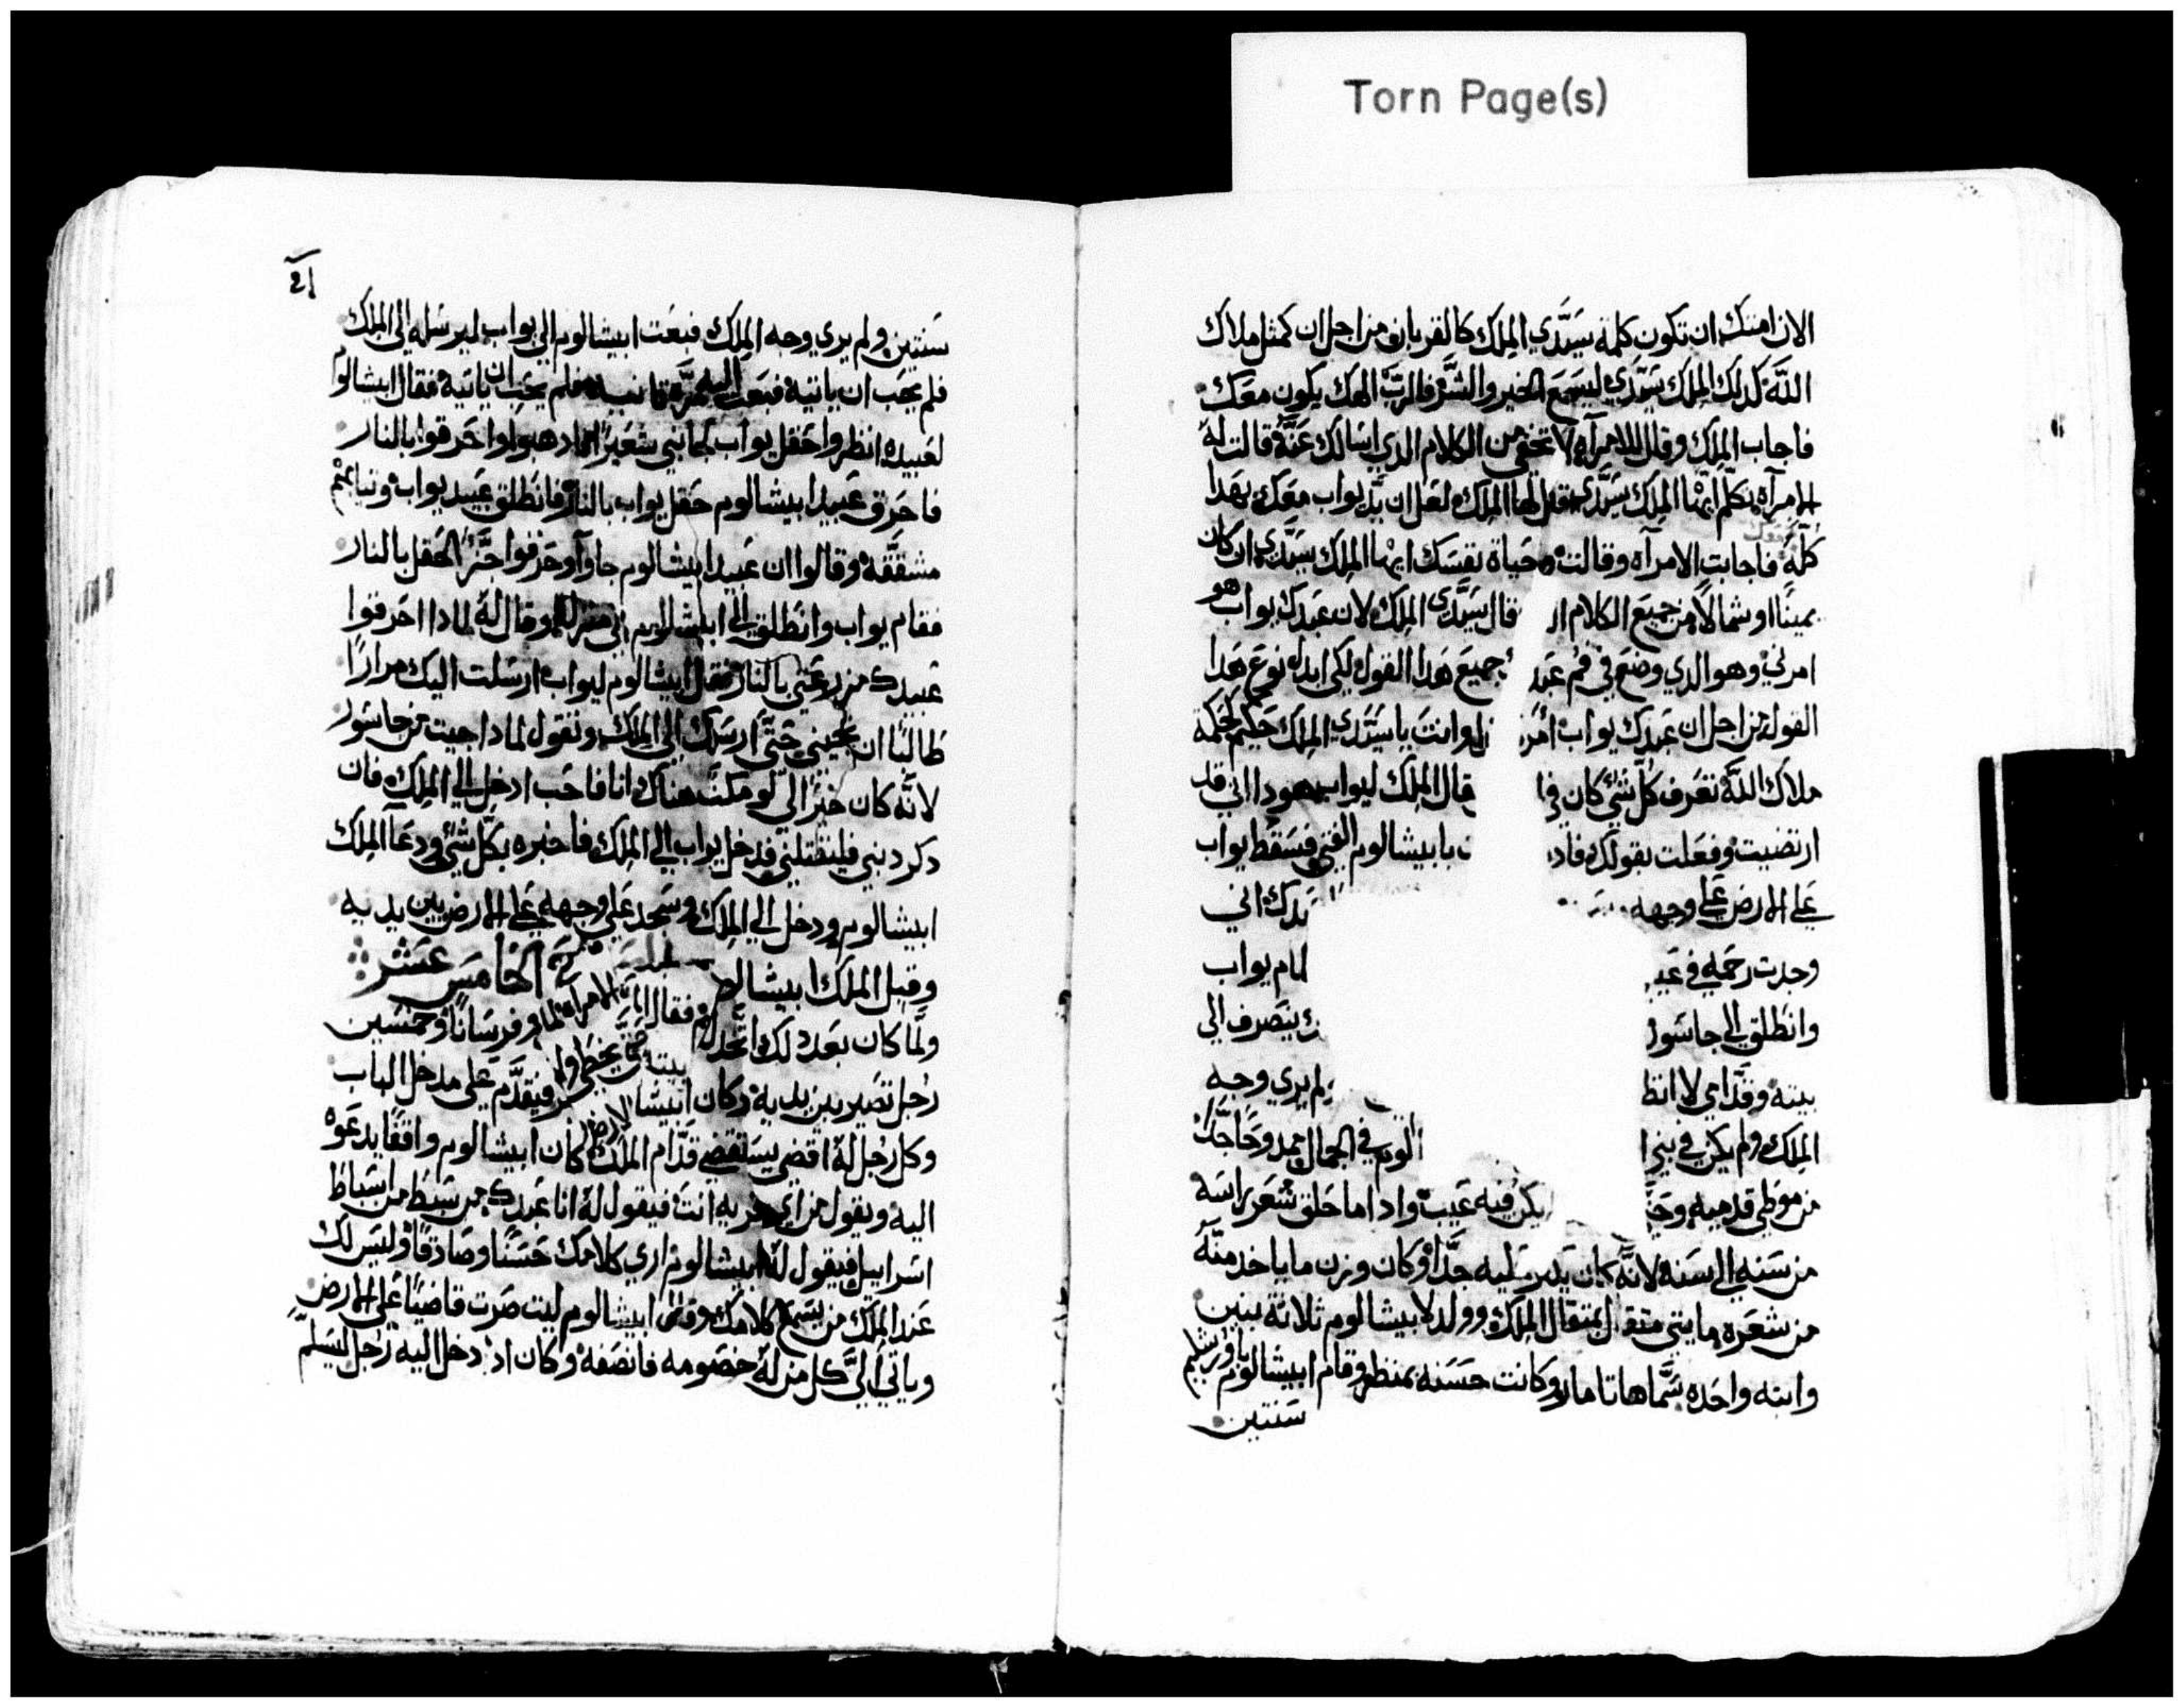 Torn Page(s)
الان امتك ان تكون كلمة سيدي الملك كالقربان من اجل ان كمثل ملاك
الله كدلك الملك سيدي ليسمع الخير والشر والرب الهك يكون معك
فاجاب الملك وقال للامرآه لا تخفي من الكلام الدي اسالك عنه قالت له
الامرآه تكلم ايها الملك سيدي فقال لها الملك لعل ان يد يواب معك بهدا
كله فاجابت الامرآه وقالت وحياة نفسك ايها الملك سيدي ان كان
يمينا او شمالا من جميع الكلام قال سيدي الملك لان عبدك يواب هو
امرني وهو الدي وضع في فم جميع هدا القول لكي ابدل نوع هدا
القول من اجل ان عبدك يواب وانت يا سيدي الملك حكيم كحكمة
ملاك الله تعرف كل شي كان قال الملك ليواب هودا اني قد
ارتضيت وفعلت بقولك بابيشالوم الفتي فسقط يواب
علي الارض علي وجهه اني
وجدت رحمه في يواب
وانطلق الي جاشور ينصرف الي
بيته وقدامي لا يري وجه
الملك ولم يكن في في الجمال وجدا
من موطي قدميه يكن فيه عيب وادا ما حلق شعر راسه
من سنه الي سنه لانه كان جدا وكان وزن ما ياخد منه
من شعره مايتي متقال بمتقال الملك وولد لابيشالوم ثلاثة بنين
وابنه واحده سماها تامار وكانت حسنه بمنظر وقام ابيشالوم باورشليم
سنتين
٤١
سنتين ولم يري وجه الملك فبعت ابيشالوم الي يواب ليرسله الي الملك
فلم يحب ان ياتيه فبعت اليه مره تانيه فلم يحب ان ياتيه فقال ابيشالوم
لعبيده انظروا حقل يواب شعير ادهبوا واحرقوا بالنار
فاحرق عبيد ابيشالوم حقل يواب بالنار فانطلق عبيد يواب وتيابهم
مشققه وقالوا ان عبيد ابيشالوم جاوآ وحرقوا الحقل بالنار
فقام يواب وانطلق الي ابيشالوم الي منزله وقال له لمادا احرقوا
عبيدك مزرعتي بالنار فقال ابيشالوم ليواب ارسلت اليك مرارا
طالبا ان تجيني حتي ارسلك الي الملك وتقول لمادا جيت من جاشور
لانه كان خيرا لي لو مكتت هناك انا فاحب ادخل الي الملك فان
دكر دنبي فليقتلني فدخل يواب الي الملك فاخبره بكل شي ودعا الملك
ابيشالوم ودخل الي الملك وسجد علي وجهه علي الارض بين يديه
وقبل الملك ابيشالوم الخامس عشر
ولما كان بعد دلك اتخد وفرسانا وخمسين
رجل تصير بين يديه وكان فيتقدم علي مدخل الباب
وكل رجل له اقضي يستقضي قدام الملك كان ابيشالوم واقفا يدعوه
اليه ويقول من اي قريه انت فيقول له انا عبدك من سبط من اسباط
اسراييل فيقول له ابيشالوم اري كلامك حسنا وصادقا وليس لك
عند الملك من يسمع كلامك وقال ابيشالوم ليت صرت قاضيا علي الارض
وياتي الي كل من له خصومه فانصفه وكان اد دخل اليه رجل ليسلم